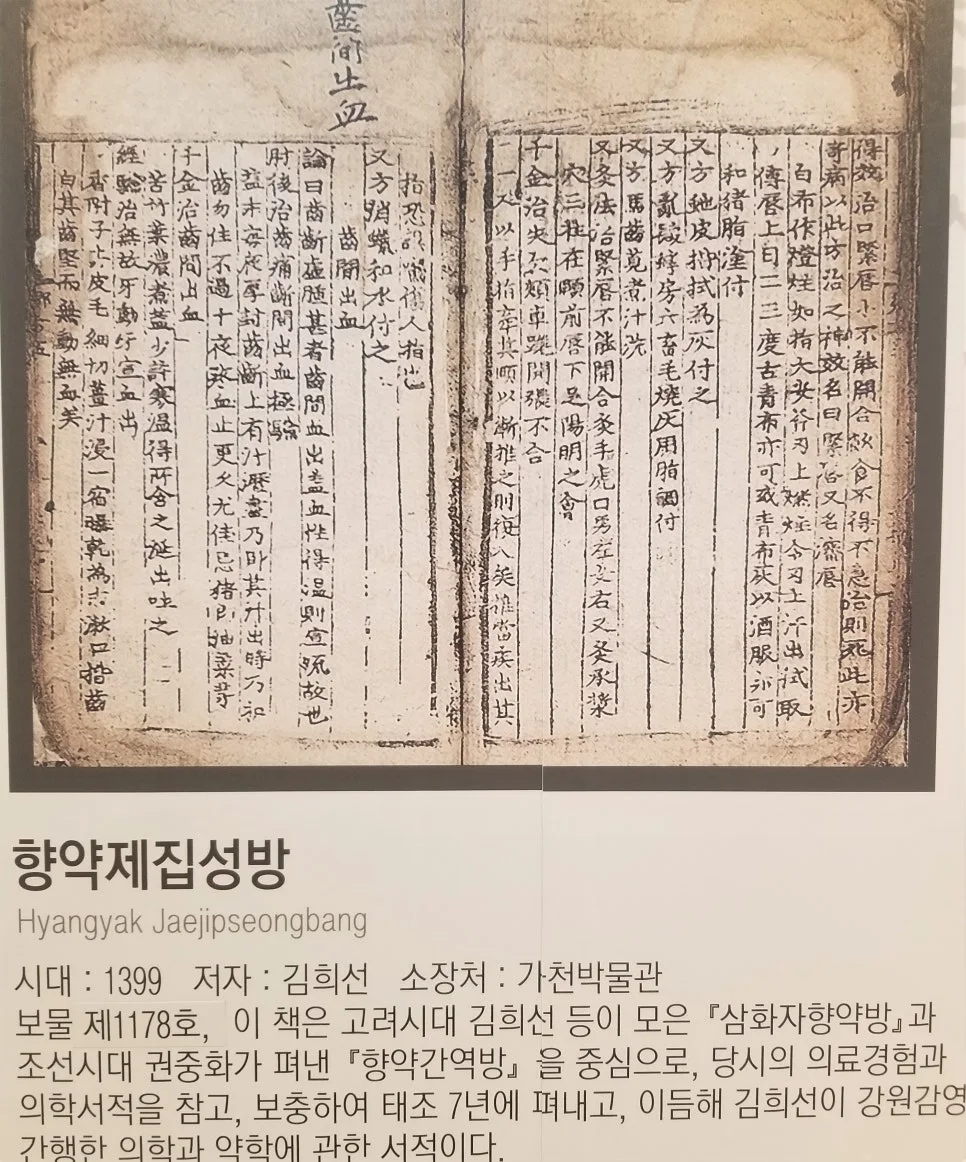 齒間出血
得效治口緊唇小不能開合飲食不得不急治則死此亦
奇病以此方治之神效名曰緊唇又名瀋唇
白布作燈炷如指大安斧刃上燃炷令刃上汗出拭取
傅唇上日二三度古青布亦可或青布灰以酒服亦可
和猪脂塗付
又方蛇皮拭為灰付之
又方亂髮蜂房六畜毛燒灰用脂調付
又方馬齒莧煮汁洗
又灸法治緊唇不能開合灸手虎口男左女右又灸承漿
穴三壯在頤前唇下足陽明之會
千金治失欠頰車蹉開張不合
一人以手指牽其頤以漸推之則復入矣推當疾出其
指恐誤嚙傷人指也
又方消蠟和水付之
齒間出血
論曰齒齗虛隨甚者齒間血出盖血性得溫則宣流故也
肘後治齒痛齗間出血極驗
塩末每夜厚封齒齗上有汁瀝盡乃卧其汁出時乃
齒勿住不過十夜疼血止更久尤佳忌猪魚油菜等
千金治齒間出血
苦竹葉濃煮盐少許寒溫得所含之涎出吐之
經驗治無故牙動宣血出
香附子去皮毛細切薑汁浸一宿曝乾為末漱口揩齒
自其齒堅而無動無血矣
향약제집성방
Hyangyak Jaejipseongbang
시대 : 1399 저자 : 김희선 소장처 : 가천박물관
보물 제1178호, 이 책은 고려시대 김희선 등이 모은 『삼화자향약방』과
조선시대 권중화가 펴낸 『향약간역방』을 중심으로, 당시의 의료경험과
의학서적을 참고, 보충하여 태조 7년에 펴내고, 이듬해 김희선이 강원감영
간행한 의학과 약학에 관한 서적이다.